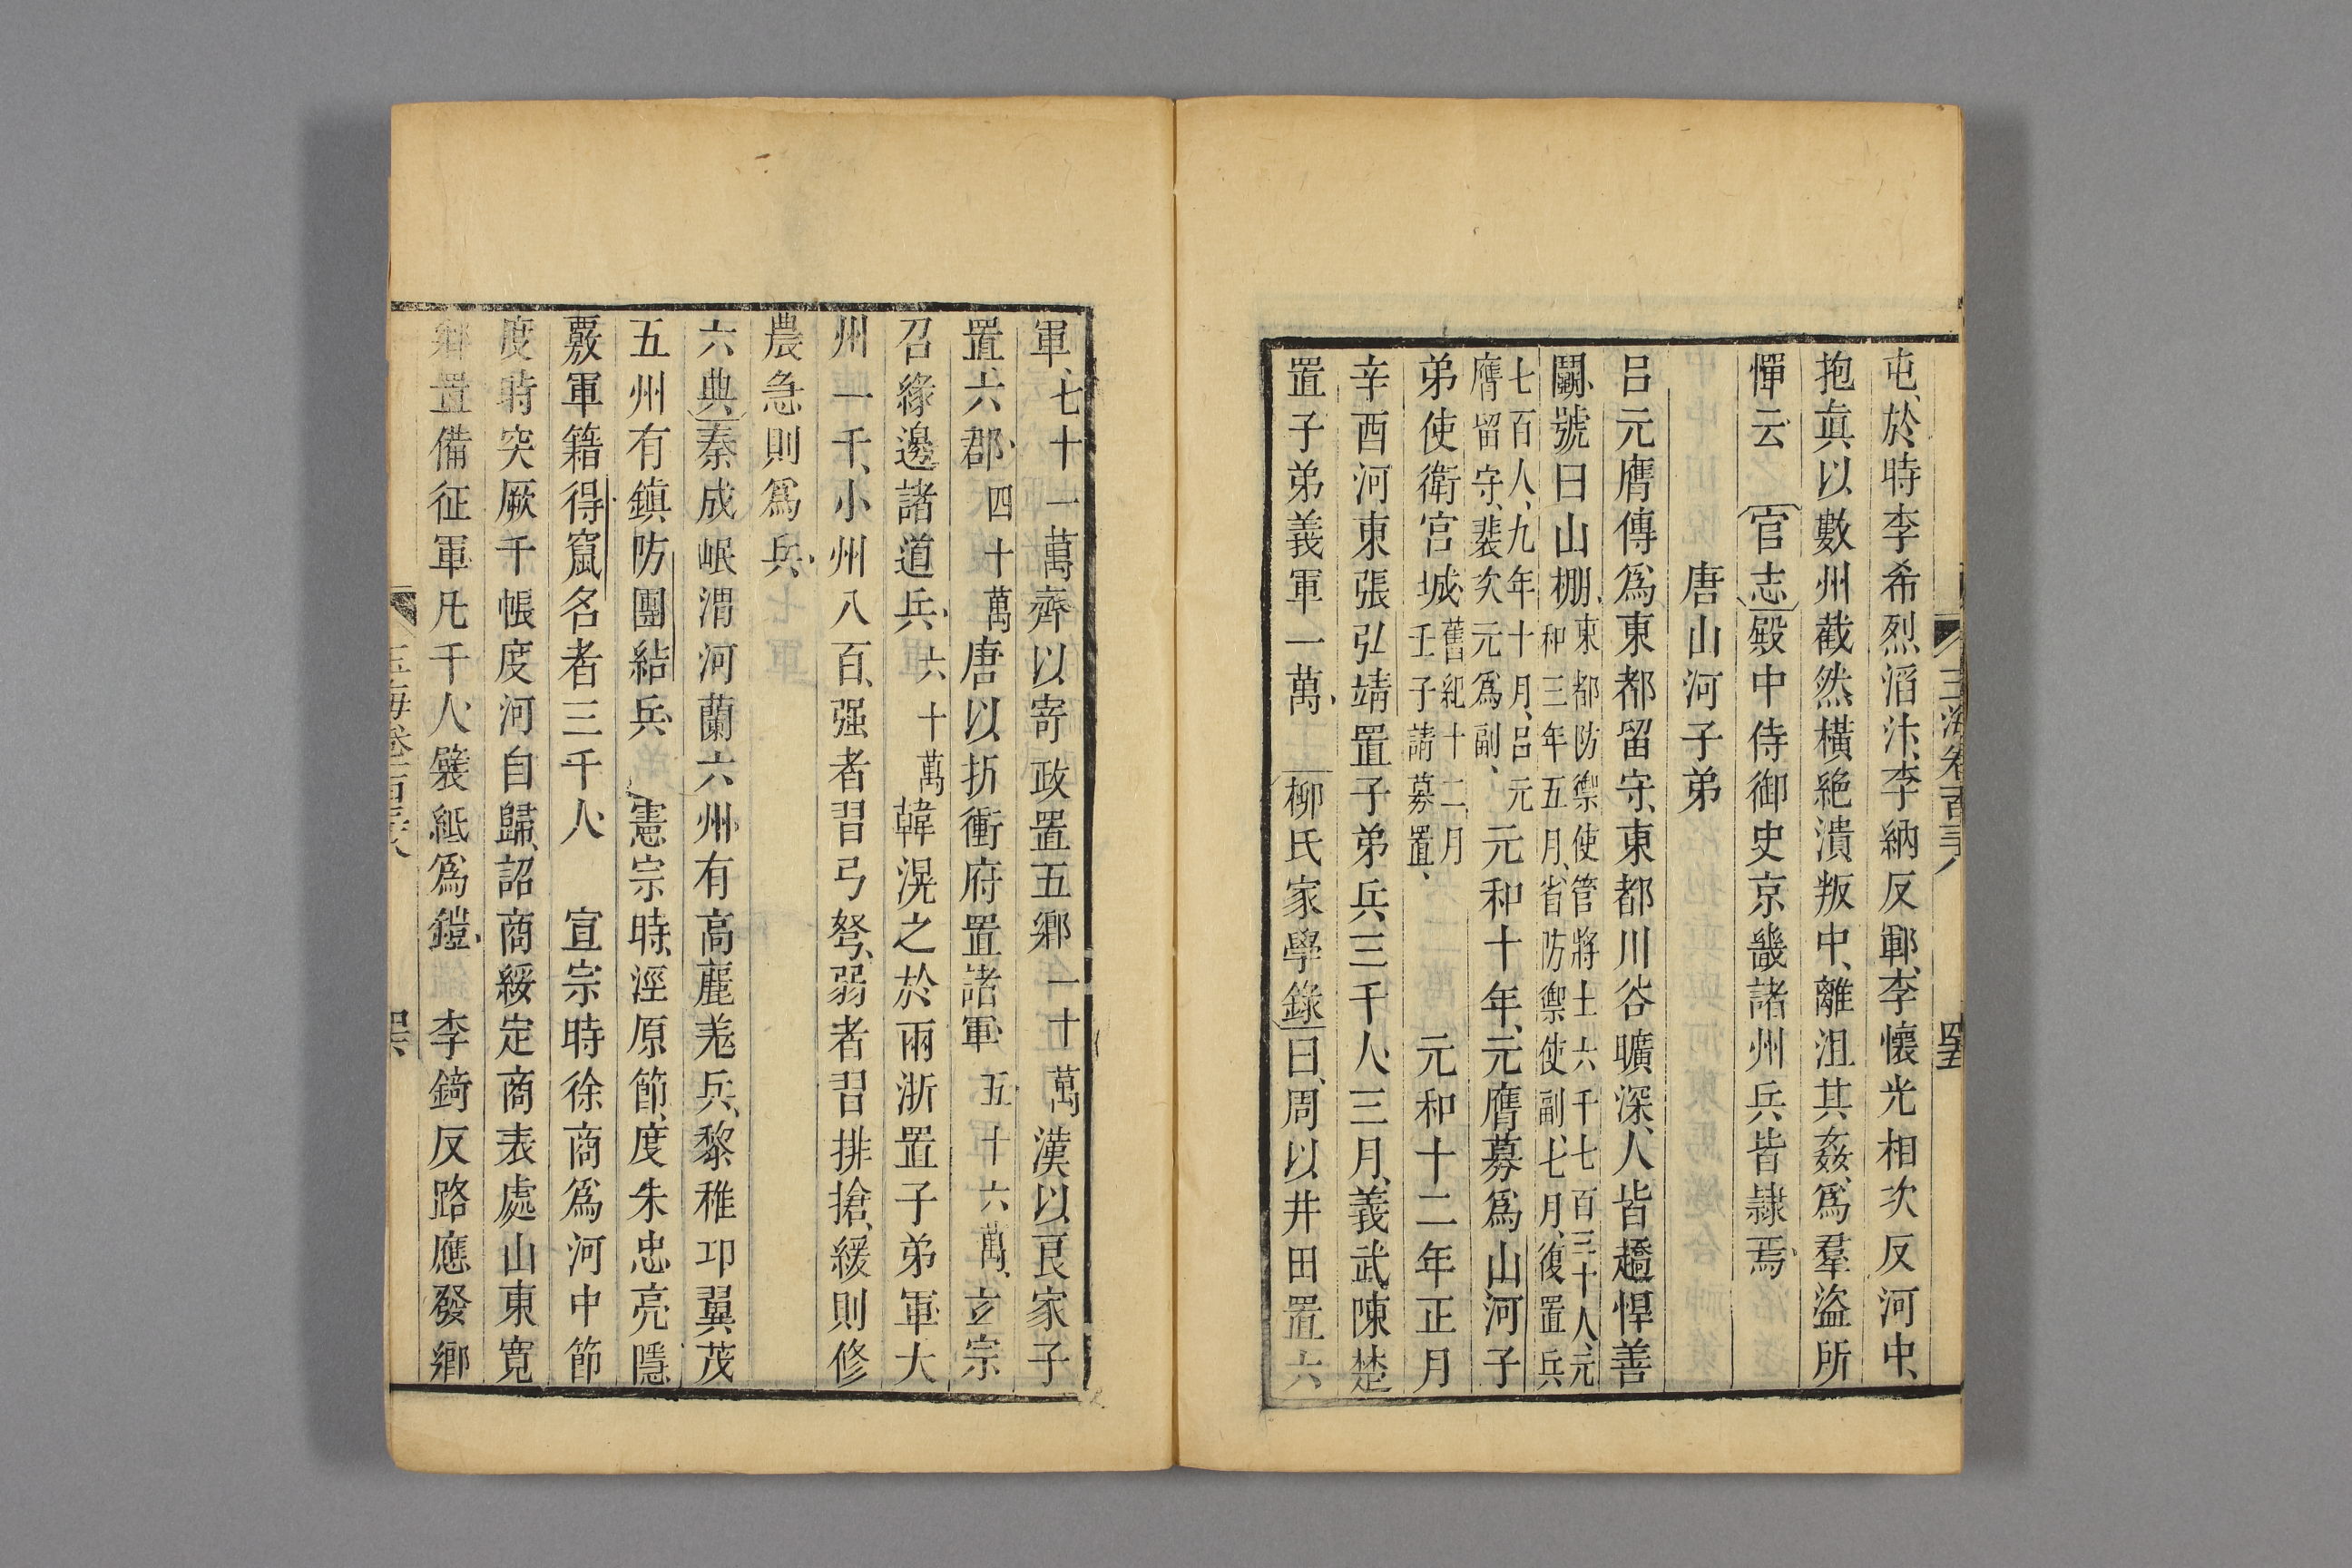 玉海卷一百三十八
屯、於時李希烈滔汴、李納反鄆、李懷光相次反河中、
抱眞以數州截然橫絶潰叛中、離沮其姦、爲羣盜所
憚云 官志殿中侍御史京畿諸州兵皆隷焉
唐山河子弟
呂元膺傳爲東都留守、東都川谷曠深、人皆趫悍善
鬬、號曰山棚、東都防禦使管將士六千七百三十人、元
和三年五月、省防禦使副、七月、復置兵
七百人、九年十月、呂元
膺留守、裴次元爲副、元和十年、元膺募爲山河子
弟使衛宮城、舊紀十二月
壬子請募置、元和十二年正月
辛酉河東張弘靖置子弟兵三千人、三月、義武陳楚
置子弟義軍一萬、柳氏家學錄曰、周以井田置六
軍、七十一萬齊以寄政置五鄉一十萬漢以良家子
置六郡、四十萬唐以折衝府置諸軍五十六萬、玄宗
召緣邊諸道兵、六十萬韓滉之於兩浙置子弟軍大
州一千、小州八百、强者習弓弩、弱者習排搶、緩則修
農急則爲兵、
六典秦成岷渭河蘭六州有高麗羌兵、黎稚卭翼茂
五州有鎮防團結兵 憲宗時、涇原節度朱忠亮隱
覈軍籍得竄名者三千人 宣宗時徐商爲河中節
度時突厥千帳度河自歸、詔商綏定商表處山東寛
鄉置備征軍凡千人、襞紙爲鎧、 李錡反路應發鄉
玉海卷一百三十八